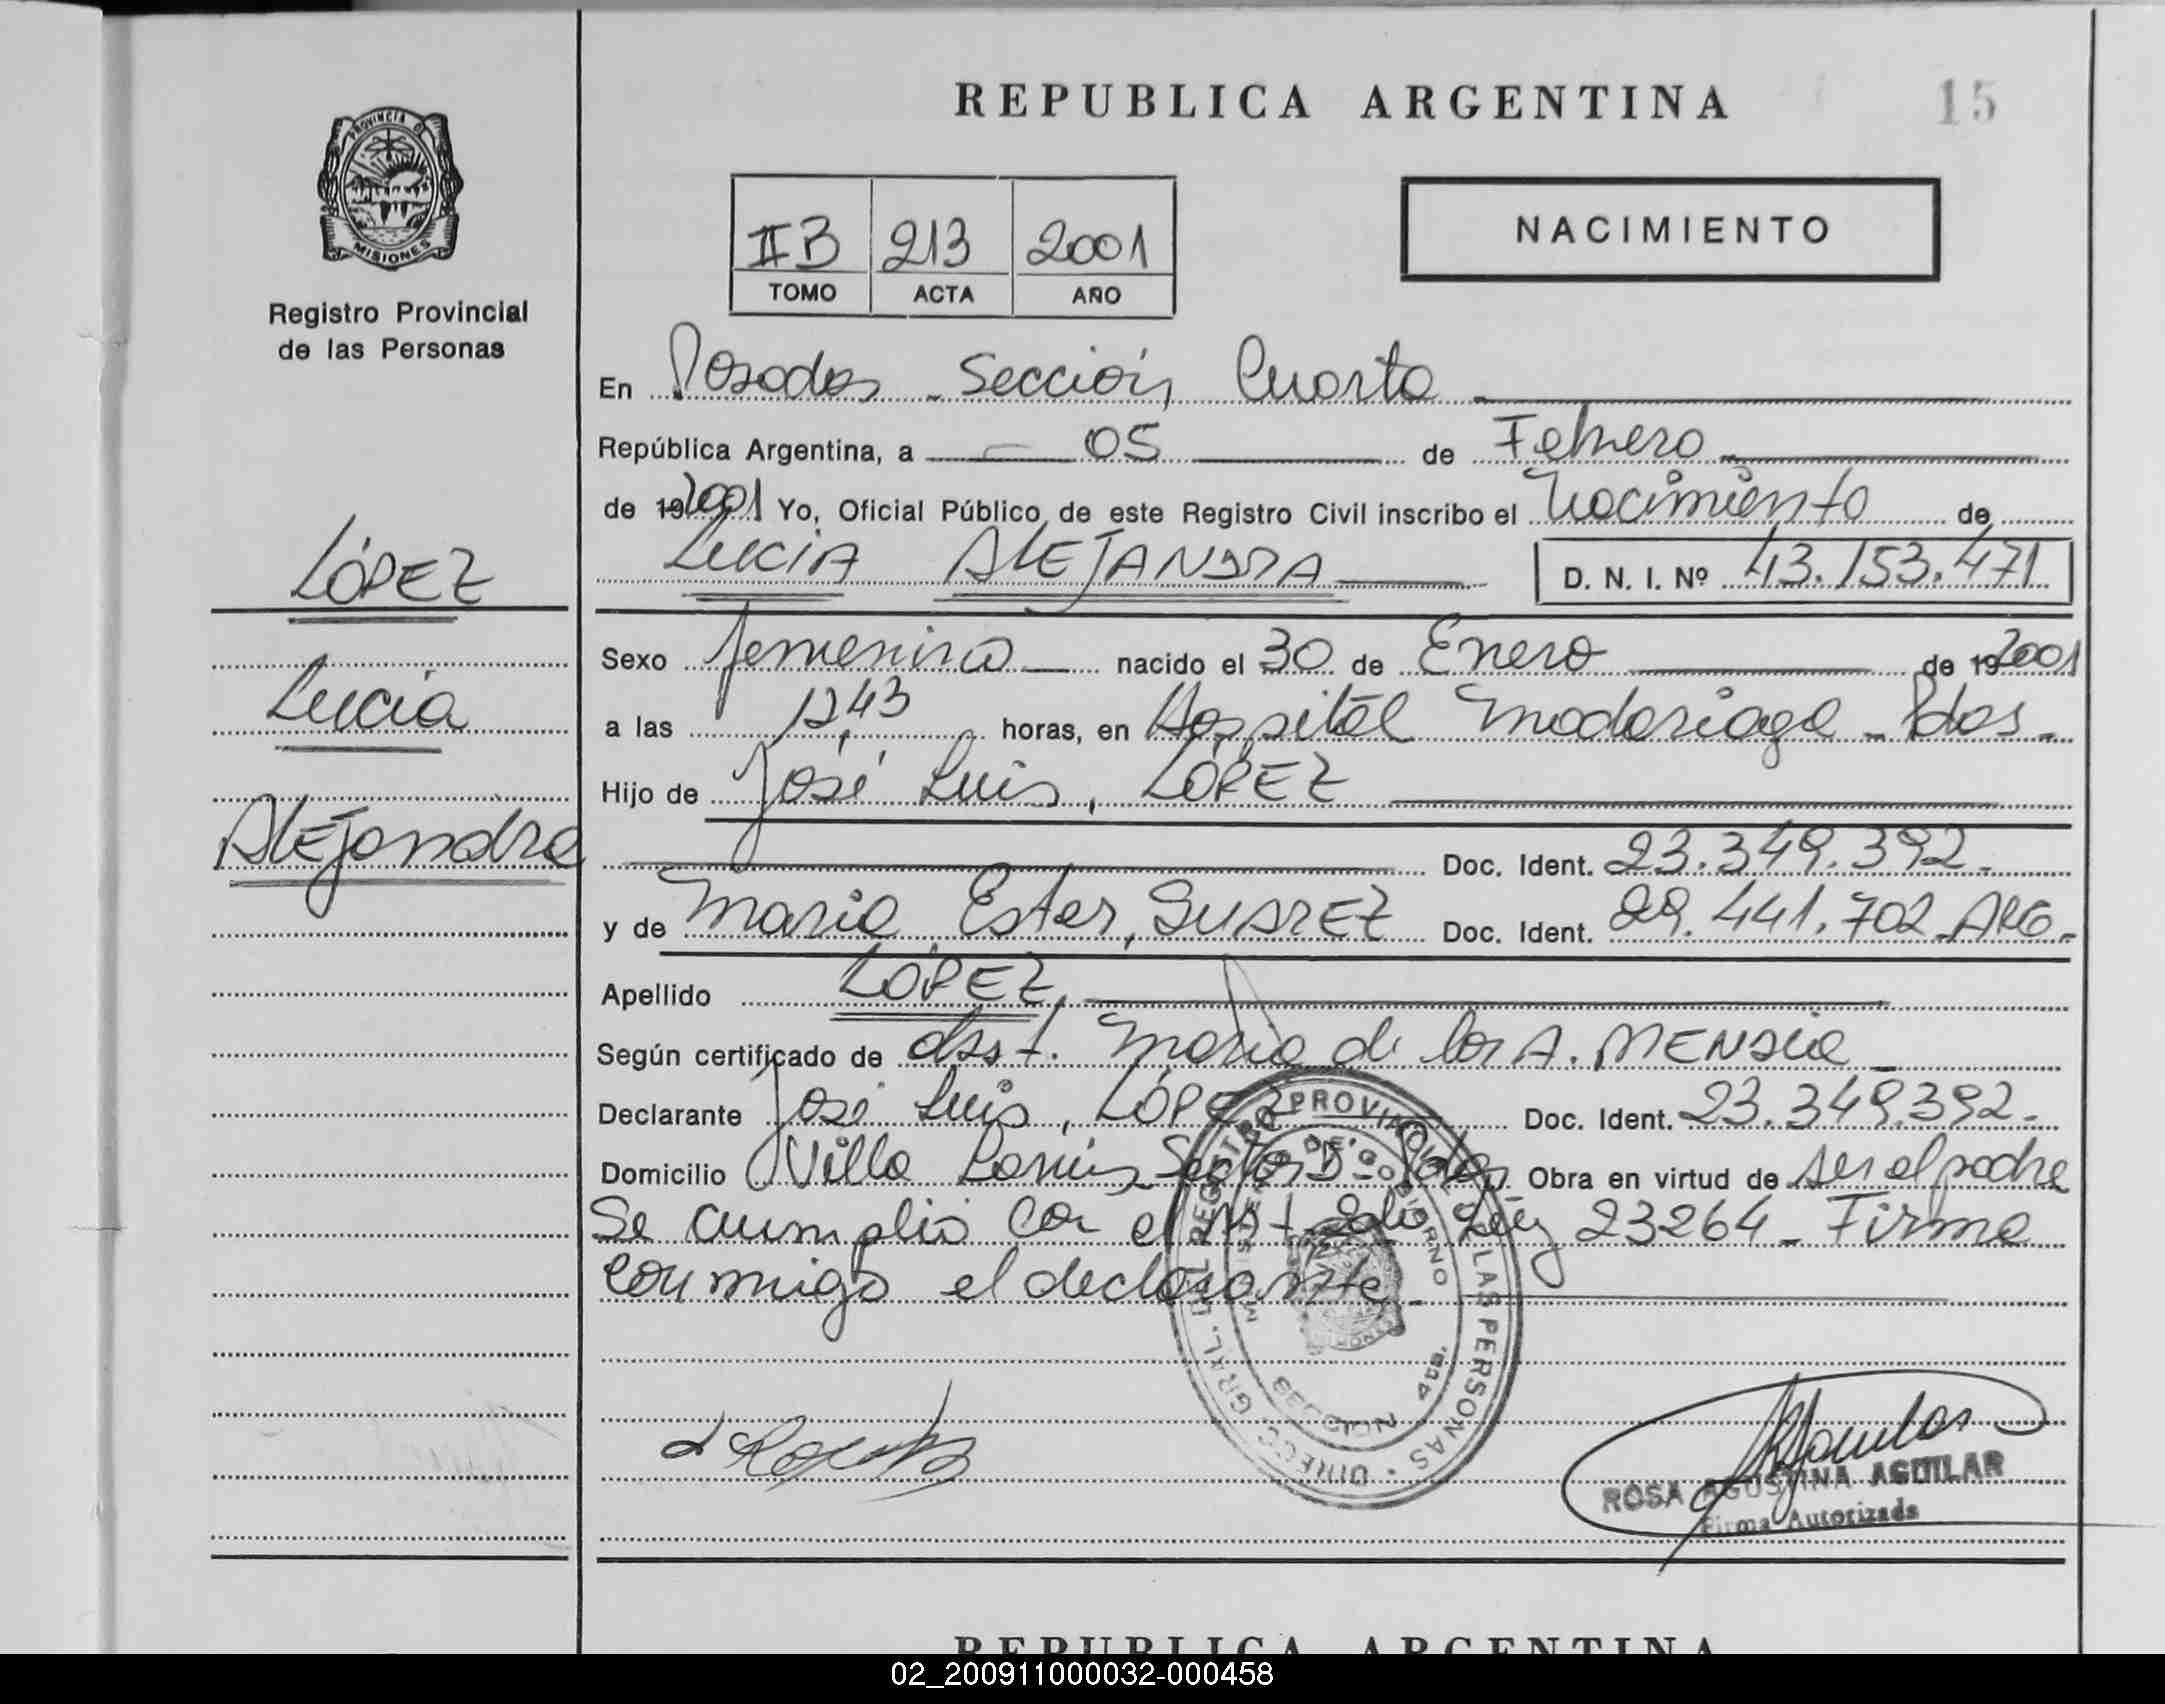 REPUBLICA ARGENTINA
15
PROVINCIA DE
MISIONES
Registro Provincial
de las Personas
II B 213 2001
TOMO ACTA AÑO
NACIMIENTO
En Posadas - Sección Cuarta
República Argentina, a 05 de Febrero
de 19 2001 Yo, Oficial Público de este Registro Civil inscribo el Nacimiento de
LUCIA ALEJANDRA D. N. I. Nº 43.153.471
LÓPEZ
Lucia
Alejandra
Sexo femenino nacido el 30 de Enero de 19 2001
a las 12,43 horas, en Hospital Madariaga - Pdas.
Hijo de José Luis, LÓPEZ
Doc. Ident. 23.349.392.-
y de Maria Ester, SUAREZ Doc. Ident. 29.441.702 ARG.-
Apellido LÓPEZ,
Según certificado de Obst. Maria de los A. MENDEZ
Declarante José Luis, LÓPEZ Doc. Ident. 23.349.392.-
Domicilio Villa Lanus Sector D - Pdas, Obra en virtud de ser el padre
Se cumplió con el Art. 2do Ley 23264 - Firma
conmigo el declarante.
DIRECC. GRAL. DEL REGISTRO PROVINCIAL DE LAS PERSONAS
MINISTERIO DE GOBIERNO
SECCION 4ta.
ROSA AGUSTINA AGUILAR
Firma Autorizada
REPUBLICA ARGENTINA
02_200911000032-000458